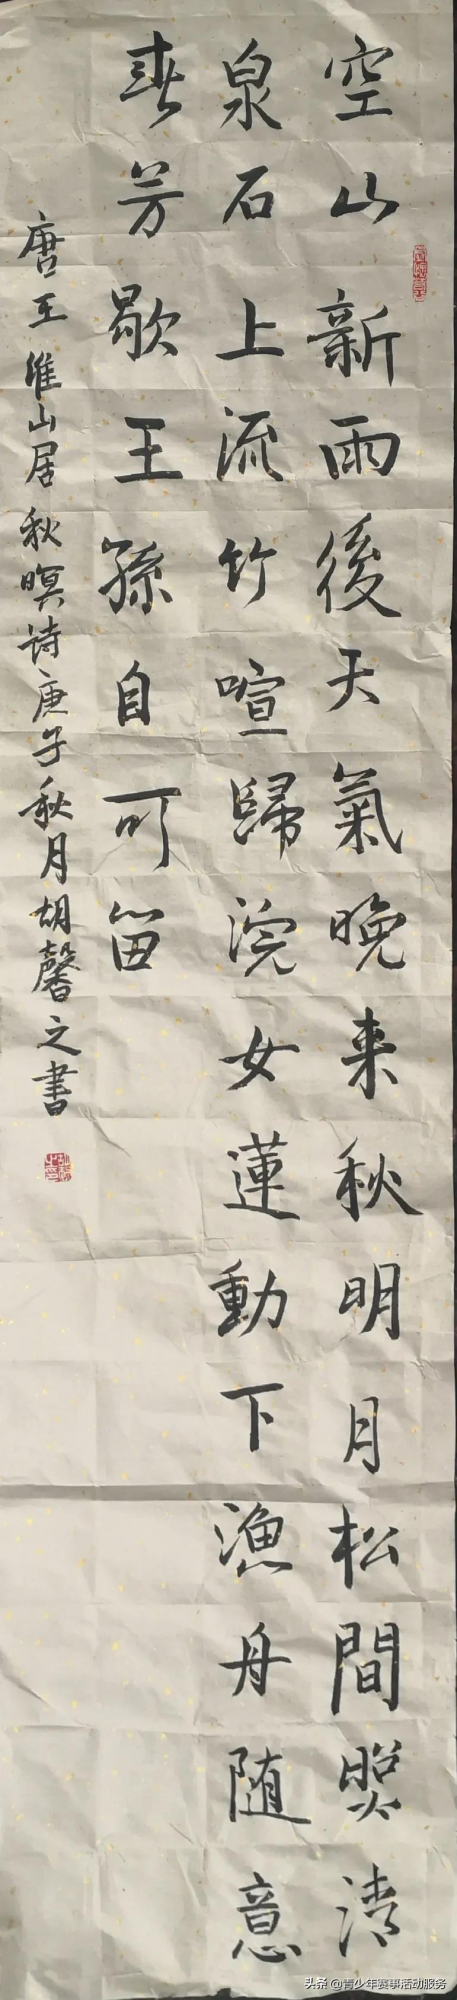 空山新雨後天氣晚来秋明月松間照清
泉石上流竹喧歸浣女蓮動下漁舟随意
春芳歇王孫自可留
唐王维山居秋暝诗庚子秋月胡馨之書
头条@青少年赛事活动服务